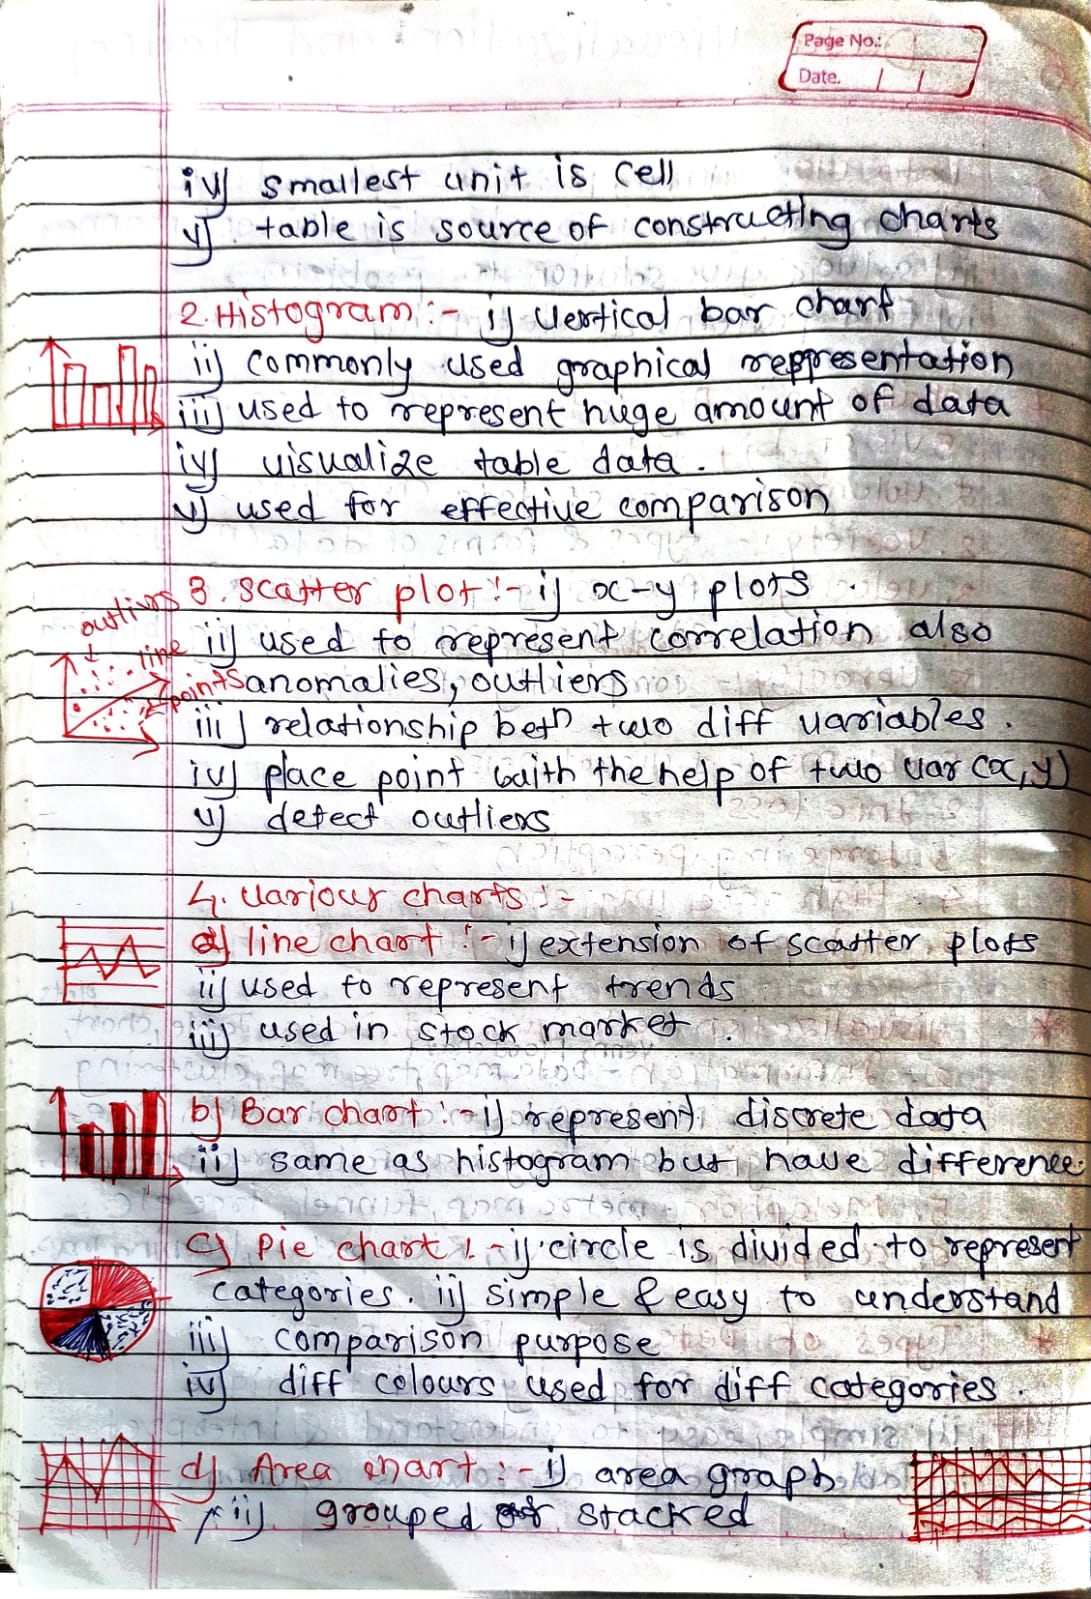 Page No.:
Date. / /
iv) smallest unit is cell
v) table is source of constructing charts
2. Histogram :- i) vertical bar chart
ii) commonly used graphical reppresentation
iii) used to represent huge amount of data
iv) visualize table data.
v) used for effective comparison
3. scatter plot :- i) x-y plots
outliers
ii) used to represent correlation also
line
points
anomalies, outliers
iii) relationship betn two diff variables.
iv) place point waith the help of two var (x,y)
v) detect outliers
4. Various charts :-
a) line chart :- i) extension of scatter plots
ii) used to represent trends
iii) used in stock market.
b) Bar chart :- i) represent discrete data
ii) same as histogram but have difference.
c) Pie chart :- i) circle is divided to represent
categories. ii) simple & easy to understand
iii) comparison purpose
iv) diff colours used for diff categories.
d) Area chart :- i) area graph
ii) grouped or stacked